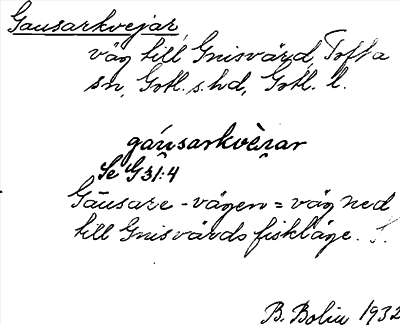 Gausarkvejar,
väg till Gnisvärd, Tofta
sn, Gotl. s. hd, Gotl. l.
gáusarkvèrar
Se G31:4
Gausare-vägen = väg ned
till Gnisvärds fiskläge.
B. Bolin 1932